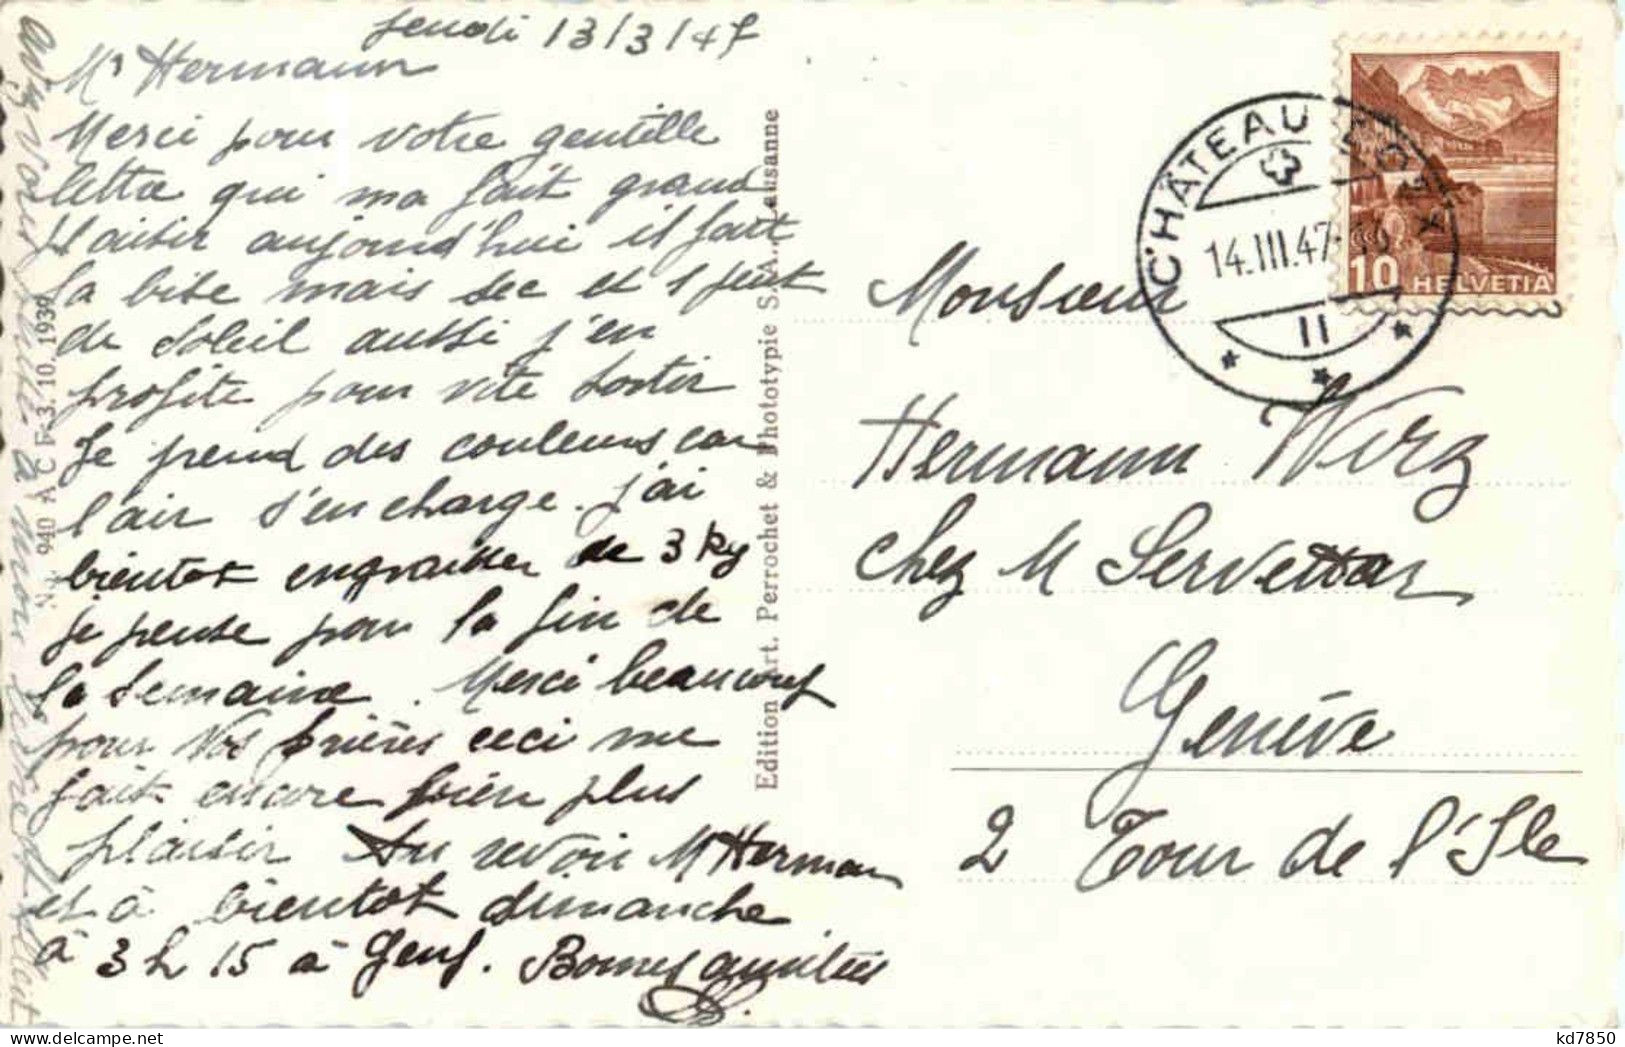 Jeudi 13/3/47
Mr Hermann
Merci pour votre gentille
lettre qui ma fait grand
plaisir aujourd'hui il fait
la bise mais sec et 1 peut
de soleil aussi j'en
profite pour vite sortir
Je prend des couleurs car
l'air s'en charge. j'ai
bientot engraisser de 3 kg
je pense pour la fin de
la semaine. Merci beaucoup
pour vos prières ceci me
fait encore bien plus
plaisir Au revoir M Herman
et à bientot dimanche
à 3 h 15 à Genf. Bonnes amitiés
avez vous
à mon
940 A C F. 3. 10. 1939
Edition Art. Perrochet & Phototypie S. A., Lausanne
CHÂTEAU
14.III.47
II
10 HELVETIA
Monsieur
Hermann Wirz
chez M Servettaz
Genève
2 Tour de l'Ile
kd7850